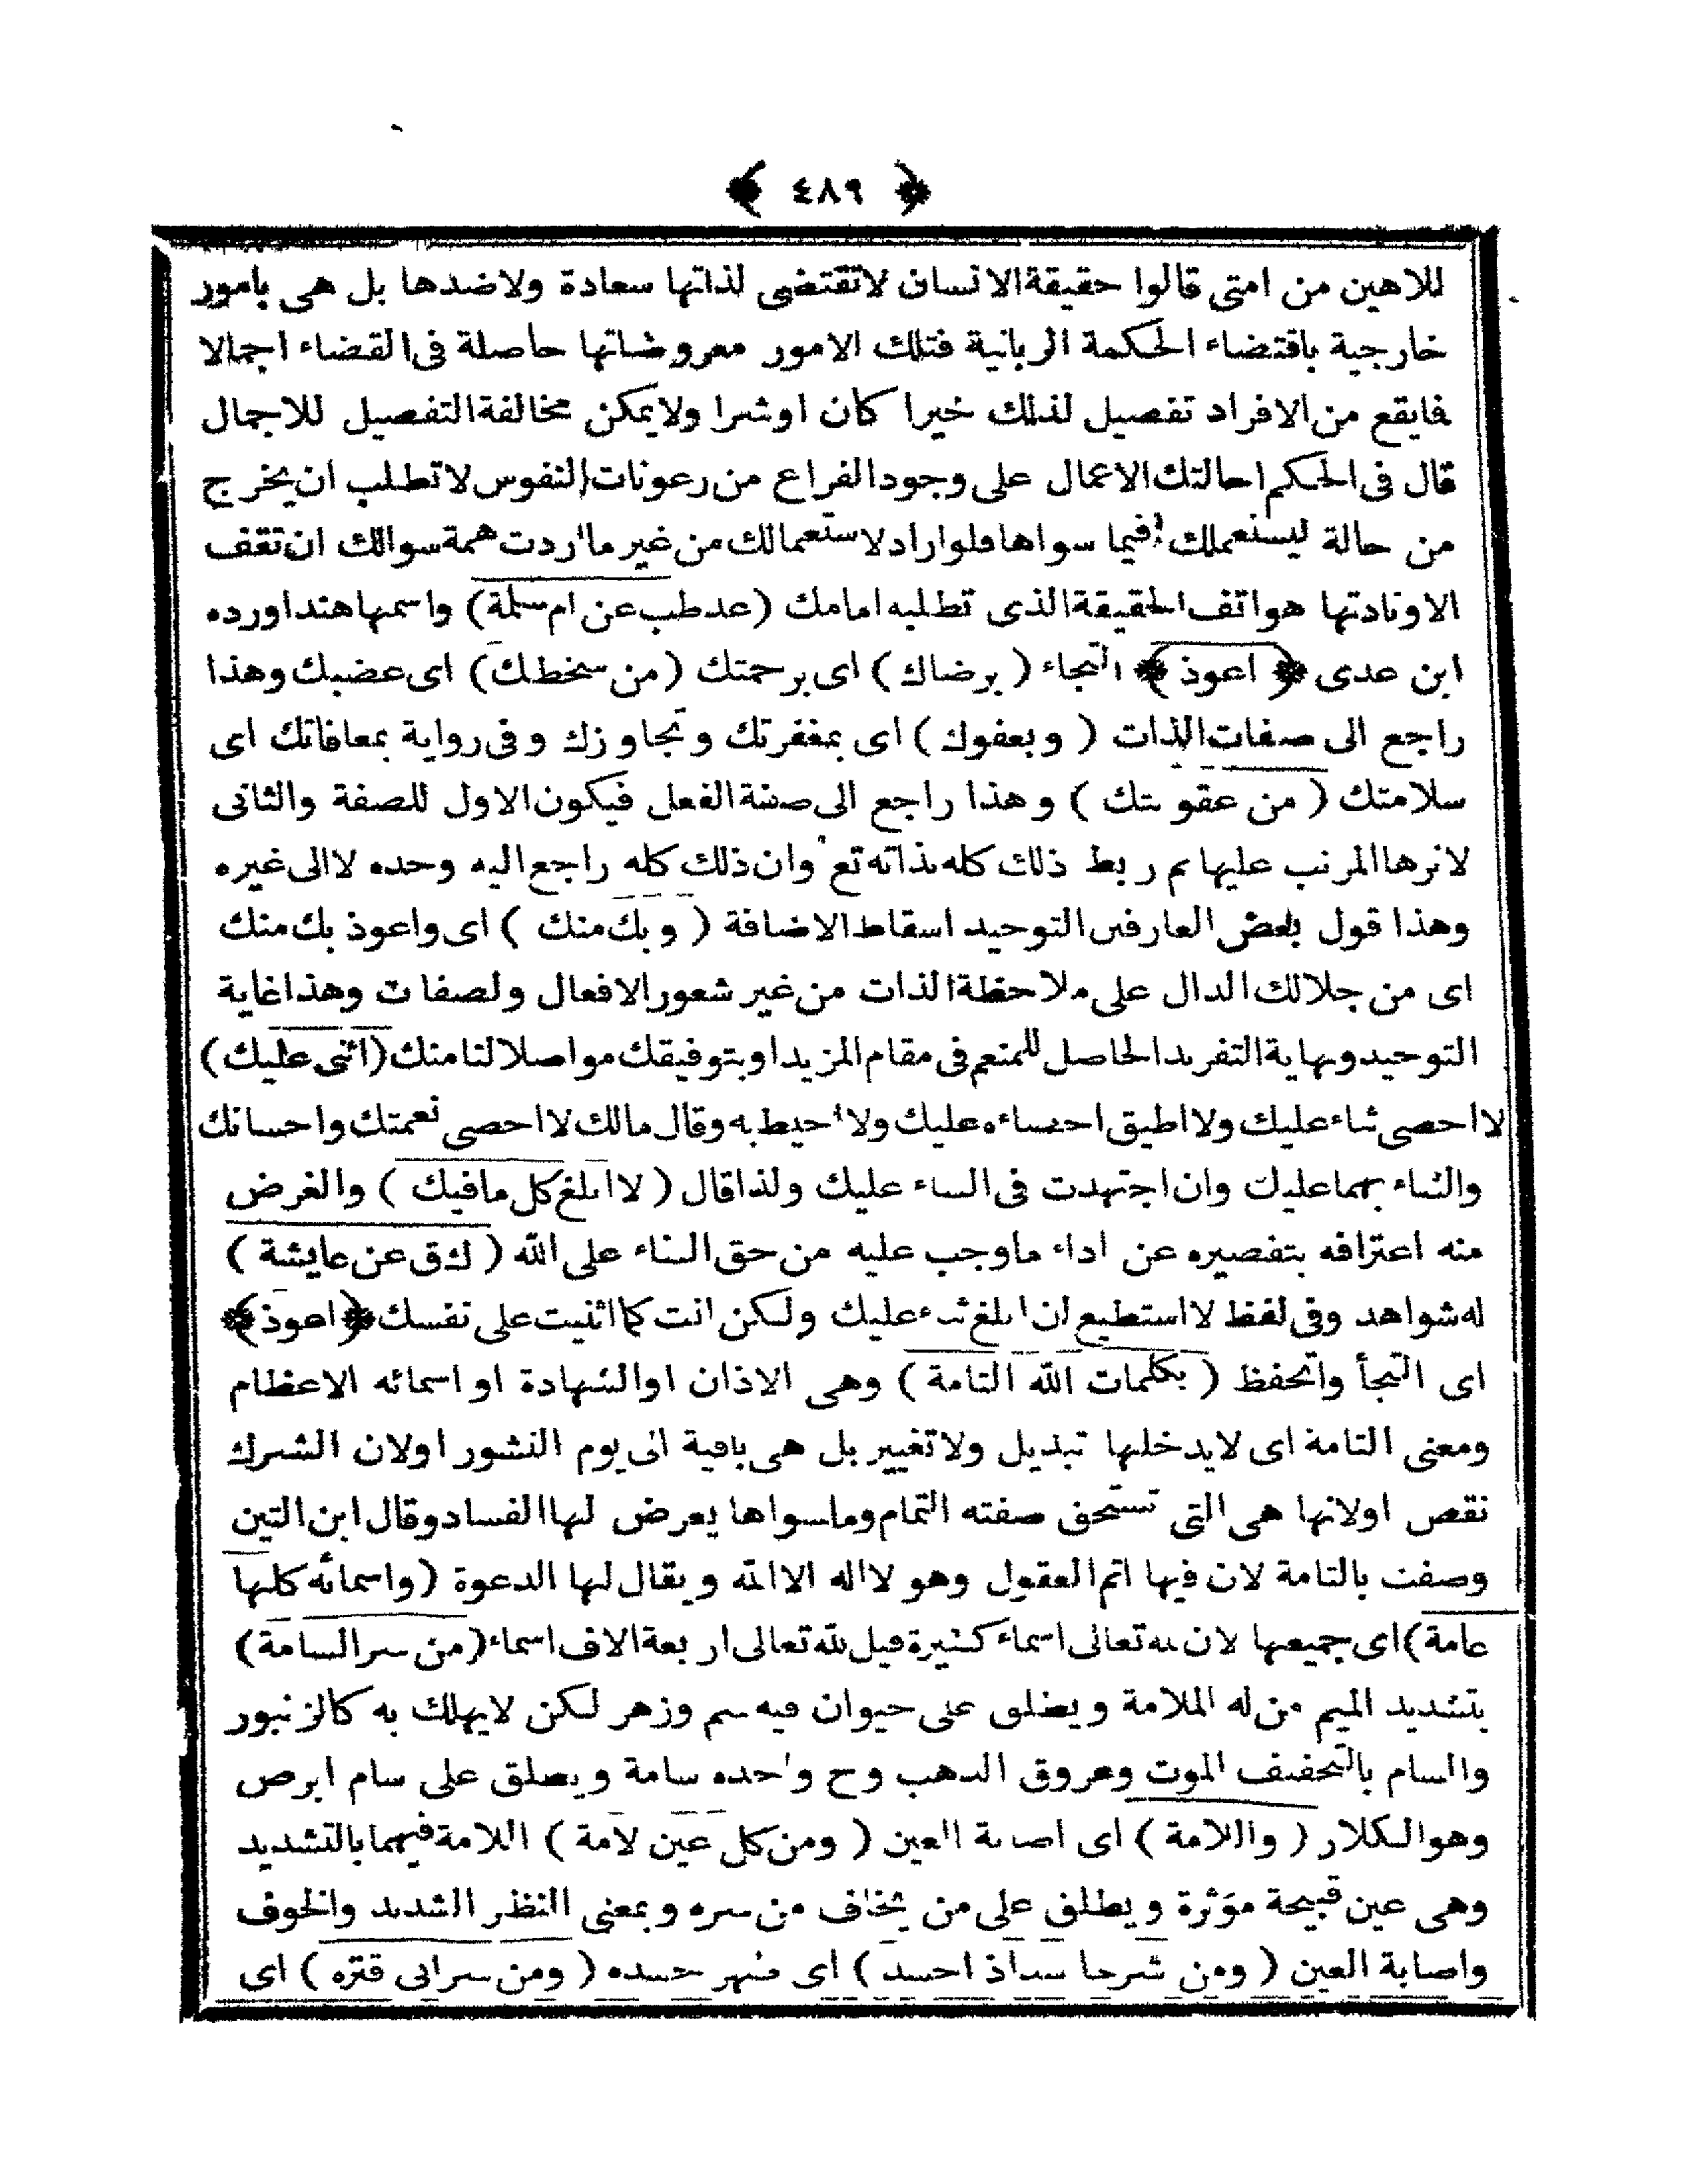 ﴿ ٤٨٩ ﴾
للاهين من امتى قالوا حقيقة الانسان لاتقتضى لذاتها سعادة ولاضدها بل هى بامور
خارجية باقتضاء الحكمة الربانية فتلك الامور معروضاتها حاصلة فى القضاء اجمالا
فايقع من الافراد تفصيل لذلك خيرا كان اوشرا ولايمكن مخالفة التفصيل للاجمال
قال فى الحكم احالتك الاعمال على وجود الفراغ من رعونات النفوس لاتطلب ان يخرج
من حالة ليستعملك فيما سواها فلواراد لاستعمالك من غير ما اردت همة سوالك ان تقف
الاونادتها هواتف الحقيقة الذى تطلبه امامك (عد طب عن ام سلمة) واسمها هند اورده
ابن عدى ﴿ اعوذ ﴾ التجاء ( برضاك ) اى برحمتك (من سخطك) اى غضبك وهذا
راجع الى صفات الذات ( وبعفوك ) اى بمغفرتك وتجاوزك وفى رواية بمعافاتك اى
سلامتك ( من عقوبتك ) وهذا راجع الى صفة الفعل فيكون الاول للصفة والثانى
لاثرها المرتب عليها ثم ربط ذلك كله بذاته تع وان ذلك كله راجع اليه وحده لا الى غيره
وهذا قول بعض العارفين التوحيد اسقاط الاضافة ( وبك منك ) اى واعوذ بك منك
اى من جلالك الدال على ملاحظة الذات من غير شعور الافعال ولصفات وهذا غاية
التوحيد ونهاية التفريد الحاصل للمنعم فى مقام المزيد اوبتوفيقك مواصلا لنا منك (اثنى عليك)
لا احصى ثناء عليك ولا اطيق احصاءه عليك ولا احيط به وقال مالك لا احصى نعمتك واحسانك
والثناء بهما عليك وان اجتهدت فى الثناء عليك ولذا قال ( لا ابلغ كل مافيك ) والغرض
منه اعترافه بتقصيره عن اداء ماوجب عليه من حق الثناء على الله ( ك ق عن عايشة )
له شواهد وفى لفظ لا استطيع ان ابلغ ثناء عليك ولكن انت كما اثنيت على نفسك ﴿ اعوذ ﴾
اى التجأ واتحفظ ( بكلمات الله التامة ) وهى الاذان اوالشهادة او اسمائه الاعظام
ومعنى التامة اى لايدخلها تبديل ولا تغيير بل هى باقية الى يوم النشور اولان الشرك
نقص اولانها هى التى تستحق صفته التمام وماسواها يعرض لها الفساد وقال ابن التين
وصفت بالتامة لان فيها اتم العقول وهو لا اله الا الله ويقال لها الدعوة (واسمائه كلها
عامة) اى جميعها لان لله تعالى اسماء كثيرة قيل لله تعالى اربعة الاف اسماء (من شر السامة)
بتشديد الميم من له الملامة ويطلق على حيوان فيه سم وزهر لكن لايهلك به كالزنبور
والسام بالتخفيف الموت وعروق الذهب وح واحده سامة ويطلق على سام ابرص
وهو الكلار ( واللامة ) اى اصابة العين ( ومن كل عين لامة ) اللامة فيهما بالتشديد
وهى عين قبيحة مؤثرة ويطلق على من يخاف من شره وبمعنى النظر الشديد والخوف
واصابة العين ( ومن شر حاسد اذ احسد ) اى ظهر حسده ( ومن شر ابى قتره ) اى